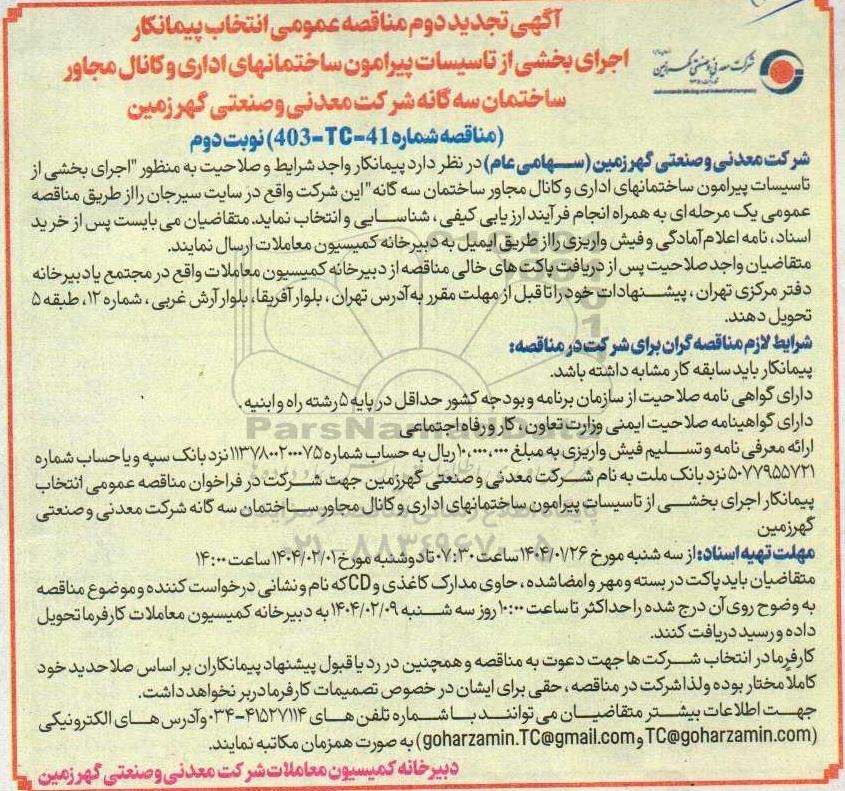 آگهی تجدید دوم مناقصه عمومی انتخاب پیمانکار
اجرای بخشی از تاسیسات پیرامون ساختمانهای اداری و کانال مجاور
ساختمان سه گانه شرکت معدنی و صنعتی گهرزمین
(مناقصه شماره 41-TC-403) نوبت دوم
شرکت معدنی و صنعتی گهرزمین
Goharzamin Mining and Industrial Company
شرکت معدنی و صنعتی گهرزمین (سهامی عام) در نظر دارد پیمانکار واجد شرایط و صلاحیت به منظور "اجرای بخشی از
تاسیسات پیرامون ساختمانهای اداری و کانال مجاور ساختمان سه گانه" این شرکت واقع در سایت سیرجان را از طریق مناقصه
عمومی یک مرحله ای به همراه انجام فرآیند ارزیابی کیفی، شناسایی و انتخاب نماید. متقاضیان می بایست پس از خرید
اسناد، نامه اعلام آمادگی و فیش واریزی را از طریق ایمیل به دبیرخانه کمیسیون معاملات ارسال نمایند.
متقاضیان واجد صلاحیت پس از دریافت پاکت های خالی مناقصه از دبیرخانه کمیسیون معاملات واقع در مجتمع یا دبیرخانه
دفتر مرکزی تهران، پیشنهادات خود را تا قبل از مهلت مقرر به آدرس تهران، بلوار آفریقا، بلوار آرش غربی، شماره ۱۲، طبقه ۵
تحویل دهند.
شرایط لازم مناقصه گران برای شرکت در مناقصه:
پیمانکار باید سابقه کار مشابه داشته باشد.
دارای گواهی نامه صلاحیت از سازمان برنامه و بودجه کشور حداقل در پایه ۵ رشته راه و ابنیه.
دارای گواهینامه صلاحیت ایمنی وزارت تعاون، کار و رفاه اجتماعی
ارائه معرفی نامه و تسلیم فیش واریزی به مبلغ ۱۰,۰۰۰,۰۰۰ ریال به حساب شماره ۱۱۳۷۸۰۰۲۰۰۰۷۵ نزد بانک سپه و یا حساب شماره
۵۰۷۷۹۵۵۷۲۱ نزد بانک ملت به نام شرکت معدنی و صنعتی گهرزمین جهت شرکت در فراخوان مناقصه عمومی انتخاب
پیمانکار اجرای بخشی از تاسیسات پیرامون ساختمانهای اداری و کانال مجاور ساختمان سه گانه شرکت معدنی و صنعتی
گهرزمین
مهلت تهیه اسناد: از سه شنبه مورخ ۱۴۰۴/۰۱/۲۶ ساعت ۰۷:۳۰ تا دوشنبه مورخ ۱۴۰۴/۰۲/۰۱ ساعت ۱۴:۰۰
متقاضیان باید پاکت در بسته و مهر و امضا شده، حاوی مدارک کاغذی و CD که نام و نشانی درخواست کننده و موضوع مناقصه
به وضوح روی آن درج شده را حداکثر تا ساعت ۱۰:۰۰ روز سه شنبه ۱۴۰۴/۰۲/۰۹ به دبیرخانه کمیسیون معاملات کارفرما تحویل
داده و رسید دریافت کنند.
کارفرما در انتخاب شرکت ها جهت دعوت به مناقصه و همچنین در رد یا قبول پیشنهاد پیمانکاران بر اساس صلاحدید خود
کاملاً مختار بوده و لذا شرکت در مناقصه، حقی برای ایشان در خصوص تصمیمات کارفرما در بر نخواهد داشت.
جهت اطلاعات بیشتر متقاضیان می توانند با شماره تلفن های ۴۱۵۲۷۱۱۴-۰۳۴ و آدرس های الکترونیکی
(TC@goharzamin.com و goharzamin.TC@gmail.com) به صورت همزمان مکاتبه نمایند.
دبیرخانه کمیسیون معاملات شرکت معدنی و صنعتی گهرزمین
ParsNamadData
۰۲۱-۸۸۳۴۹۶۷۰-۵